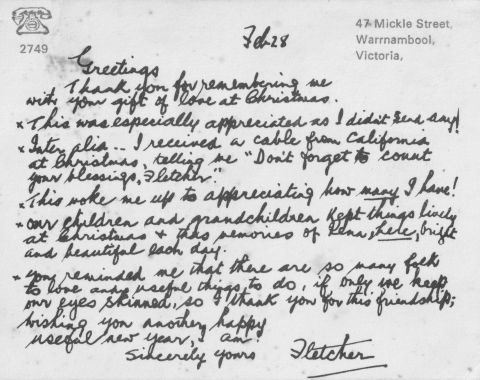 Feb 28
47 Mickle Street,
Warrnambool,
Victoria,
2749
Greetings
Thank you for remembering me
with your gift of love at Christmas.
x This was especially appreciated as I didn't send any!
x Inter alia... I received a cable from California
at Christmas, telling me "Don't forget to count
your blessings, Fletcher."
x This woke me up to appreciating how many I have!
x our children and grandchildren kept things lively
at Christmas + this memories of Rena, here, bright
and beautiful each day.
x you reminded me that there are so many folk
to love and useful things to do, if only we keep
our eyes skinned, so I thank you for this friendship;
wishing you another happy
useful new year, - am:
Sincerely yours Fletcher